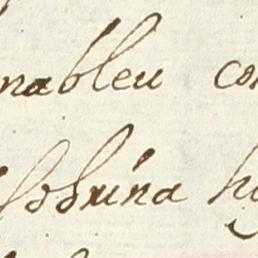 nableu con
sobrina hi